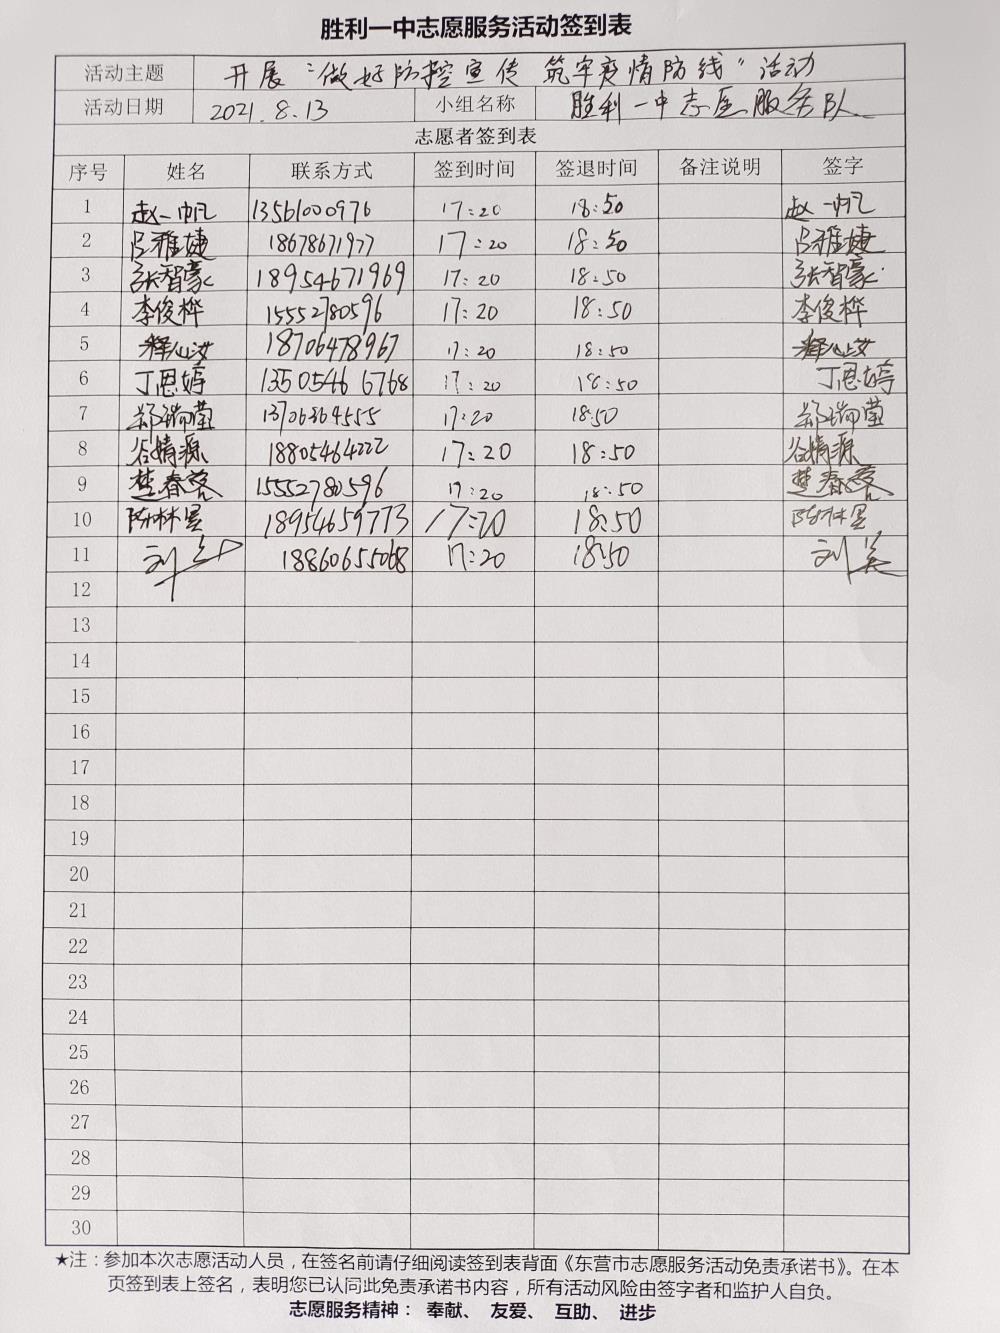 胜利一中志愿服务活动签到表
活动主题 开展“做好防控宣传 筑牢疫情防线”活动
活动日期 2021.8.13 小组名称 胜利一中志愿服务队
志愿者签到表
序号 姓名 联系方式 签到时间 签退时间 备注说明 签字
1 赵一帆 13561000976 17:20 18:50 赵一帆
2 吕雅婕 18678671977 17:20 18:50 吕雅婕
3 张智豪 18954671969 17:20 18:50 张智豪
4 李俊桦 15552780596 17:20 18:50 李俊桦
5 18706478967 17:20 18:50
6 丁恩婷 13505466768 17:20 18:50 丁恩婷
7 郑瑞莹 13706364555 17:20 18:50 郑瑞莹
8 谷婧源 18805464222 17:20 18:50 谷婧源
9 楚春蓉 15552780596 17:20 18:50 楚春蓉
10 陈林昱 18954659773 17:20 18:50 陈林昱
11 刘 18860655068 17:20 18:50 刘英
12
13
14
15
16
17
18
19
20
21
22
23
24
25
26
27
28
29
30
★注：参加本次志愿活动人员，在签名前请仔细阅读签到表背面《东营市志愿服务活动免责承诺书》。在本
页签到表上签名，表明您已认同此免责承诺书内容，所有活动风险由签字者和监护人自负。
志愿服务精神： 奉献、 友爱、 互助、 进步